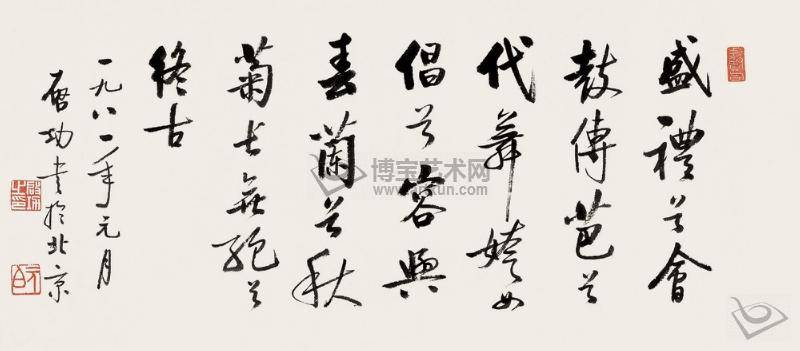 盛禮兮會
鼓傳芭兮
代舞姱女
倡兮容與
春蘭兮秋
菊長無絕兮
終古
一九八一年元月
启功書於北京
博宝艺术网